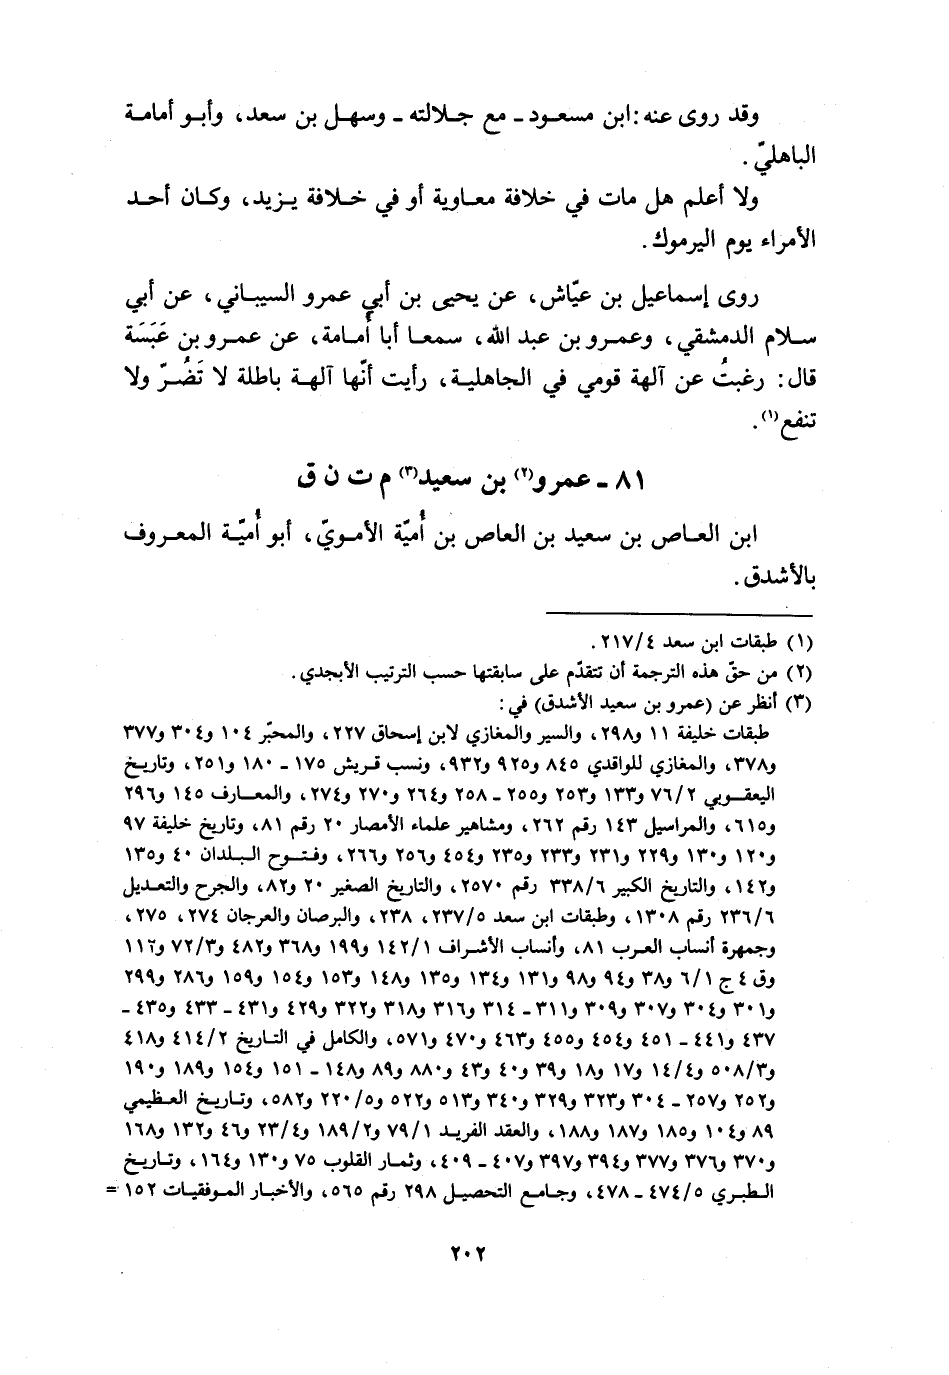 وقد روى عنه: ابن مسعود ـ مع جلالته ـ وسهل بن سعد، وأبو أمامة
الباهليّ.
ولا أعلم هل مات في خلافة معاوية أو في خلافة يزيد، وكان أحد
الأمراء يوم اليرموك.
روى إسماعيل بن عيّاش، عن يحيى بن أبي عمرو السيباني، عن أبي
سلام الدمشقي، وعمرو بن عبد الله، سمعا أبا أُمامة، عن عمرو بن عَبَسَة
قال: رغبتُ عن آلهة قومي في الجاهلية، رأيت أنّها آلهة باطلة لا تَضُرّ ولا
تنفع(١).
٨١ ـ عمرو(٢) بن سعيد(٣) م ت ن ق
ابن العاص بن سعيد بن العاص بن أُميّة الأمويّ، أبو أُميّة المعروف
بالأشدق.
(١) طبقات ابن سعد ٢١٧/٤.
(٢) من حقّ هذه الترجمة أن تتقدّم على سابقتها حسب الترتيب الأبجدي.
(٣) أنظر عن (عمرو بن سعيد الأشدق) في:
طبقات خليفة ١١ و٢٩٨، والسير والمغازي لابن إسحاق ٢٢٧، والمحبّر ١٠٤ و٣٠٤ و٣٧٧
و٣٧٨، والمغازي للواقدي ٨٤٥ و٩٢٥ و٩٣٢، ونسب قريش ١٧٥ ـ ١٨٠ و٢٥١، وتاريخ
اليعقوبي ٧٦/٢ و١٣٣ و٢٥٣ و٢٥٥ ـ ٢٥٨ و٢٦٤ و٢٧٠ و٢٧٤، والمعارف ١٤٥ و٢٩٦
و٦١٥، والمراسيل ١٤٣ رقم ٢٦٢، ومشاهير علماء الأمصار ٢٠ رقم ٨١، وتاريخ خليفة ٩٧
و١٢٠ و١٣٠ و٢٢٩ و٢٣١ و٢٣٣ و٢٣٥ و٤٥٤ و٢٥٦ و٢٦٦، وفتوح البلدان ٤٠ و١٣٥
و١٤٢، والتاريخ الكبير ٣٣٨/٦ رقم ٢٥٧٠، والتاريخ الصغير ٢٠ و٨٢، والجرح والتعديل
٢٣٦/٦ رقم ١٣٠٨، وطبقات ابن سعد ٢٣٧/٥، ٢٣٨، والبرصان والعرجان ٢٧٤، ٢٧٥،
وجمهرة أنساب العرب ٨١، وأنساب الأشراف ١٤٢/١ و١٩٩ و٣٦٨ و٤٨٢ و٧٢/٣
وق ٤ ج ٦/١ و٣٨ و٩٤ و٩٨ و١٣١ و١٣٤ و١٣٥ و١٤٨ و١٥٣ و١٥٤ و١٥٩ و٢٨٦ و٢٩٩
و٣٠١ و٣٠٤ و٣٠٧ و٣٠٩ و٣١١ ـ ٣١٤ و٣١٦ و٣١٨ و٣٢٢ و٤٢٩ و٤٣١ ـ ٤٣٣ و٤٣٥ ـ
٤٣٧ و٤٤١ ـ ٤٥١ و٤٥٤ و٤٥٥ و٤٦٣ و٤٧٠ و٥٧١، والكامل في التاريخ ٤١٤/٢ و٤١٨
و٥٠٨/٣ و١٤/٤ و١٧ و١٨ و٣٩ و٤٠ و٤٣ و٨٨٠ و٨٩ و١٤٨ ـ ١٥١ و١٥٤ و١٨٩ و١٩٠
و٢٥٢ و٢٥٧ ـ ٣٠٤ و٣٢٣ و٣٢٩ و٣٤٠ و٥١٣ و٥٢٢ و٢٢٠/٥ و٥٨٢، وتاريخ العظيمي
٨٩ و١٠٤ و١٨٥ و١٨٧ و١٨٨، والعقد الفريد ٧٩/١ و١٨٩/٢ و٢٣/٤ و٤٦ و١٣٢ و١٦٨
و٣٧٠ و٣٧٦ و٣٧٧ و٣٩٤ و٣٩٧ و٤٠٧ ـ ٤٠٩، وثمار القلوب ٧٥ و١٣٠ و١٦٤، وتاريخ
الطبري ٤٧٤/٥ ـ ٤٧٨، وجامع التحصيل ٢٩٨ رقم ٥٦٥، والأخبار الموفقيات ١٥٢ =
٢٠٢